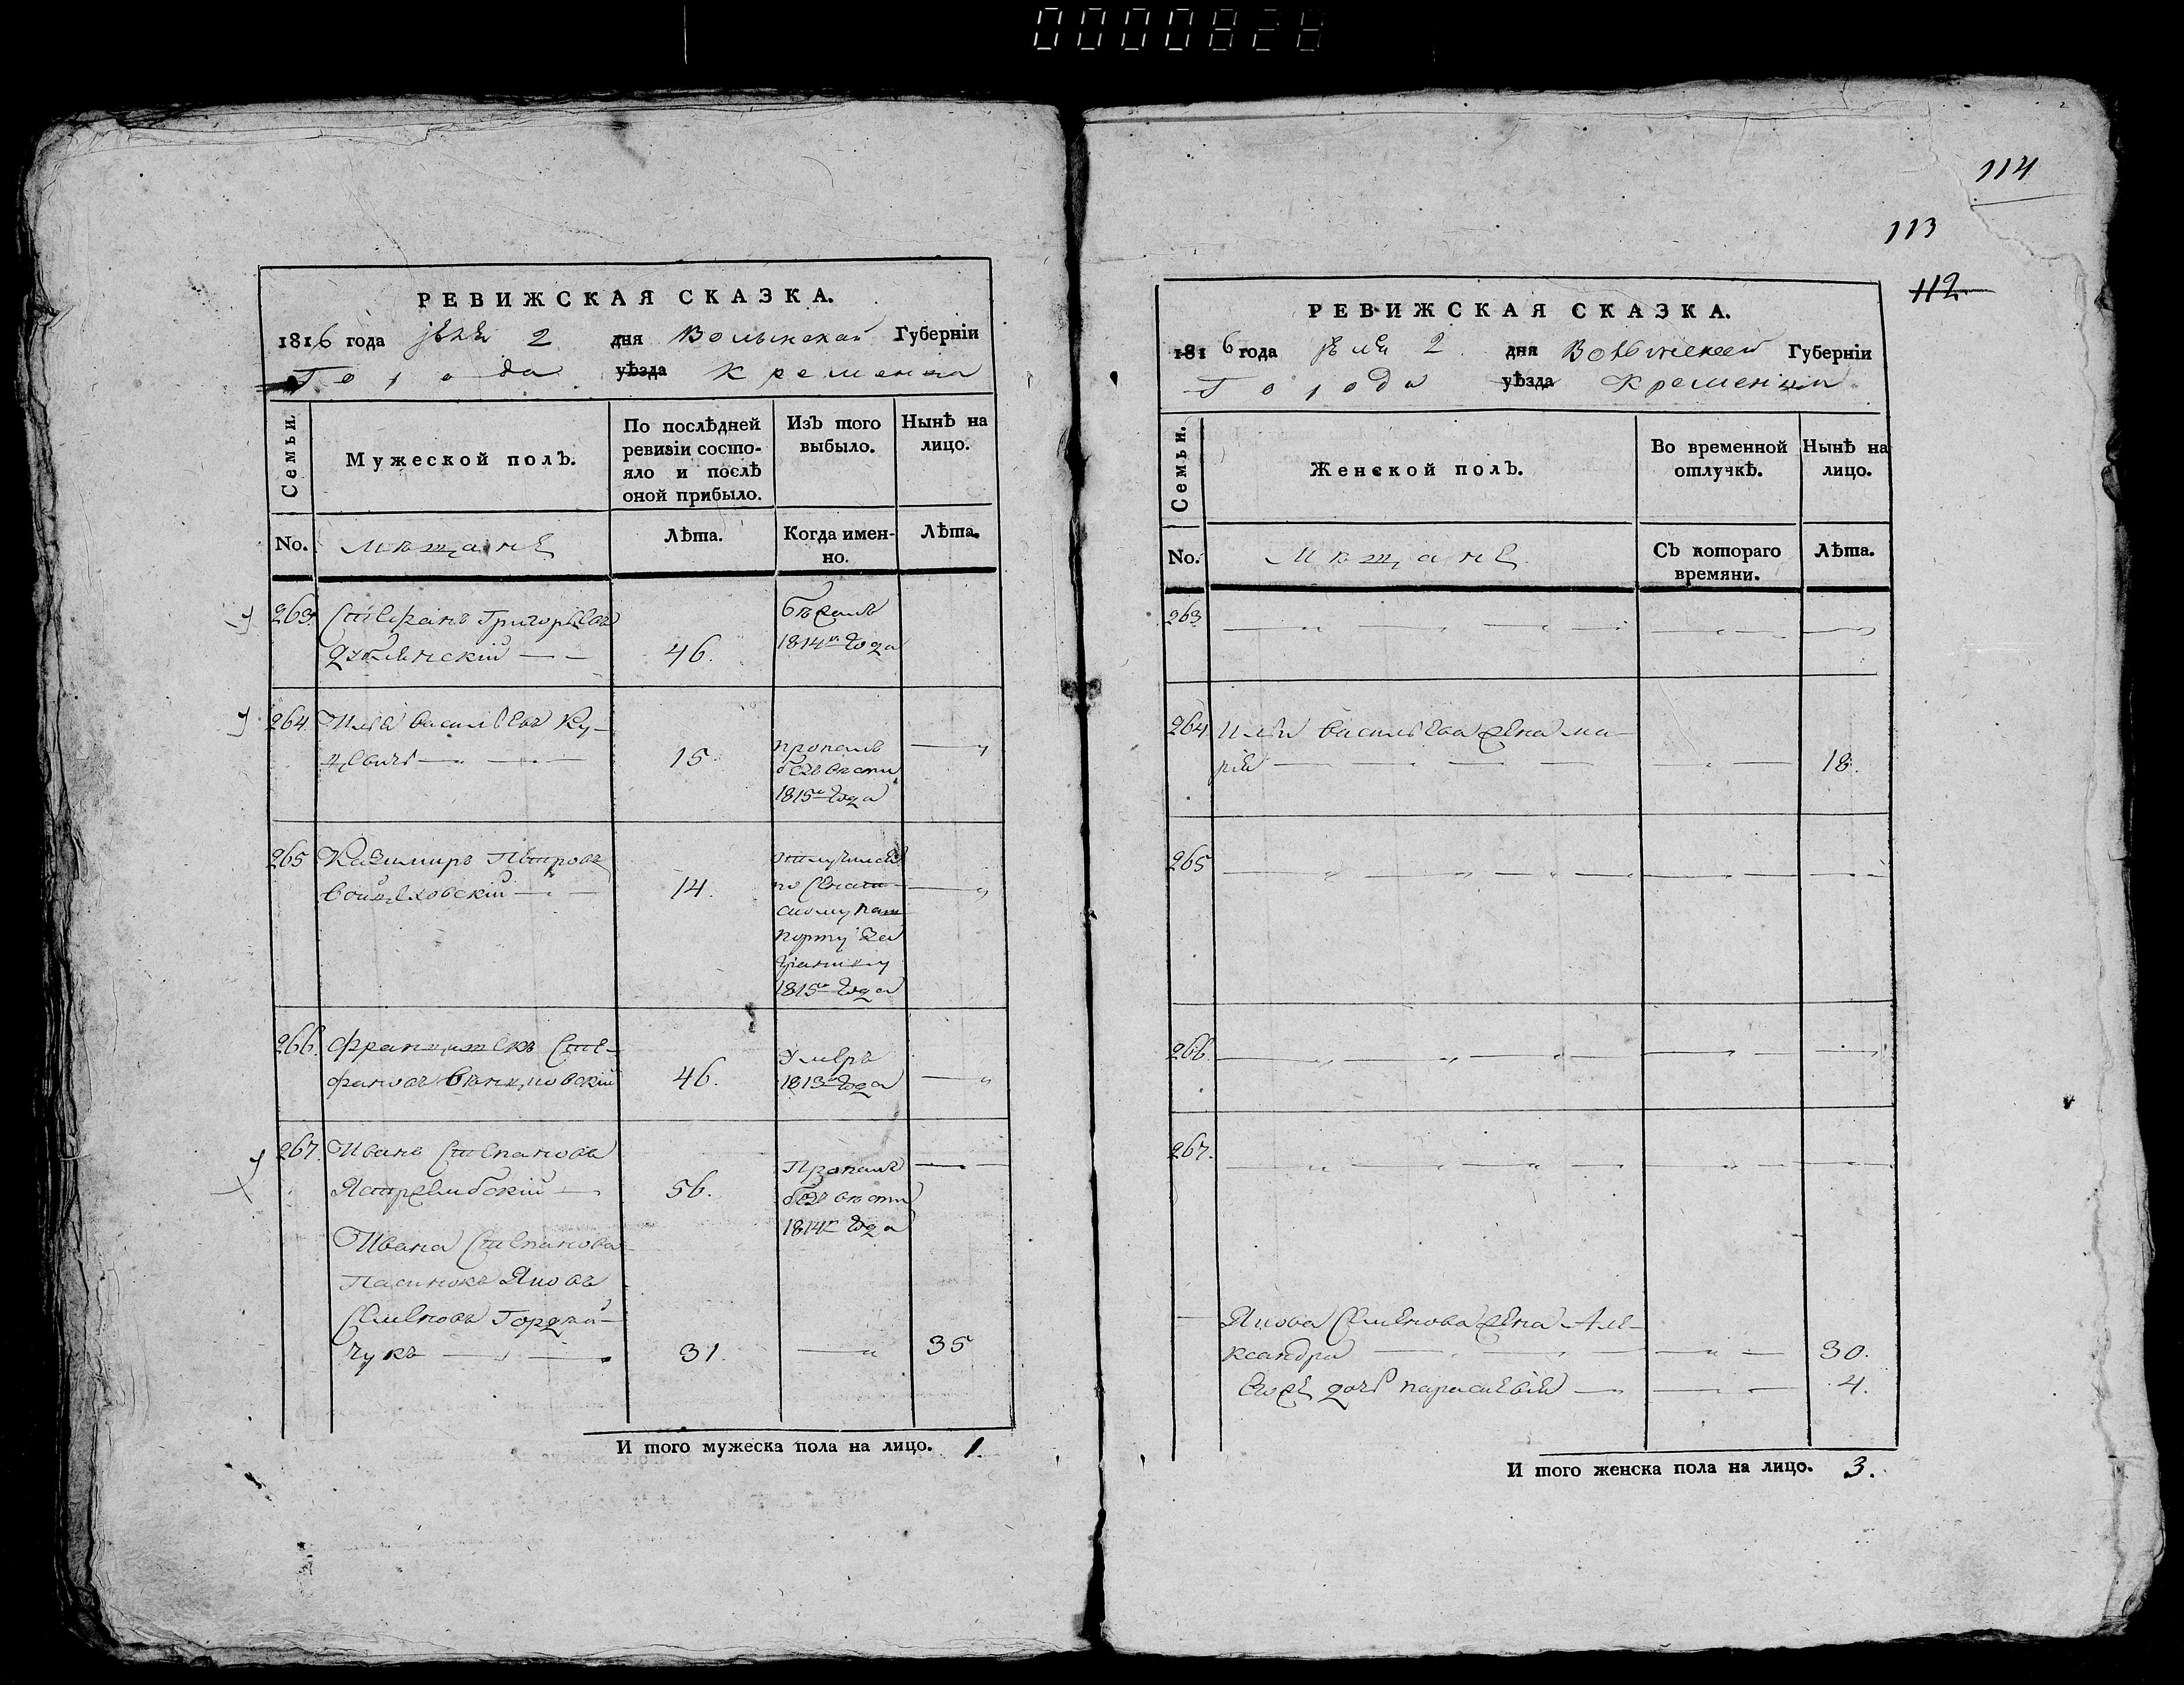 0000828
РЕВИЖСКАЯ СКАЗКА.
1816 года 2 дня Волынской Губерніи
Города уѣзда Кременца
Семьи.
Мужеской полъ.
По послѣдней ревизіи состо-
яло и послѣ оной прибыло.
Изъ того выбыло.
Нынѣ на лицо.
No. мѣщане
Лѣта.
Когда имен-
но.
Лѣта.
263. Стефанъ Григорьевъ
46.
бѣжалъ
1814го года
264. Илья Васильевъ Ку-
цевичъ
15.
пропалъ
безъ вѣсти
1815го года
265 Казимиръ Петровъ
Войцеховскій
14.
отлучился
по Сенат-
скому паш
порту за
границу
1815го года
266. Францишекъ Сте-
фановъ Венцковскій
46.
Умеръ
1813го года
267. Иванъ Степановъ
Ястржембскій
56.
Пропалъ
безъ вѣсти
1814го года
Ивана Степанова
Пасинокъ Яковъ
Семеновъ Горджій-
чукъ
31.
35
И того мужеска пола на лицо. 1.
114
113
112.
РЕВИЖСКАЯ СКАЗКА.
1816 года 2 дня Волынской Губерніи
Города уѣзда Кременца
Семьи.
Женской полъ.
Во временной отлучкѣ.
Нынѣ на лицо.
No. Мѣщане
Съ котораго времяни.
Лѣта.
263
264 Ильи Васильева жена Ма-
рія
18.
265
266.
267.
Якова Семенова жена Але-
ксандра
30.
Егоже дочь Параскевія
4.
И того женска пола на лицо. 3.